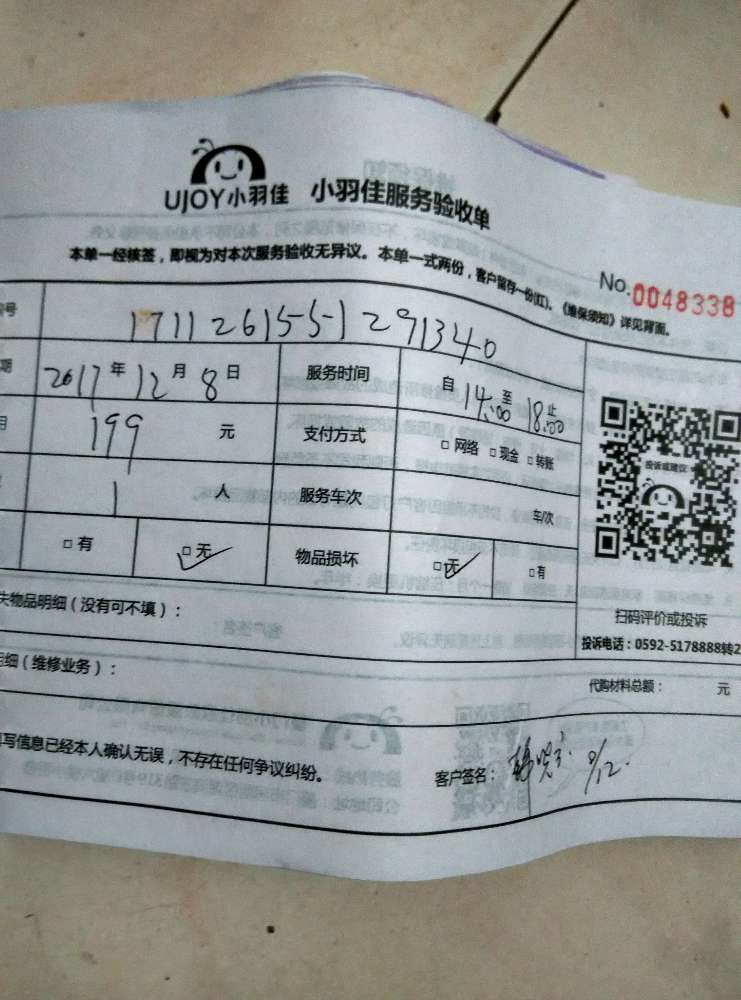 UJOY小羽佳 小羽佳服务验收单
本单一经核签，即视为对本次服务验收无异议。本单一式两份，客户留存一份(红)。《维保须知》详见背面。
No.0048338
号 17112615551291340
期 2017年12月8日 服务时间 自14:00至18:00止
199 元 支付方式 □网络 □现金 □转账
1 人 服务车次 车/次
□有 □无 物品损坏 □无 □有
投诉或建议
扫码评价或投诉
投诉电话：0592-5178888转2
失物品明细（没有可不填）：
细（维修业务）：
代购材料总额： 元
填写信息已经本人确认无误，不存在任何争议纠纷。
客户签名：